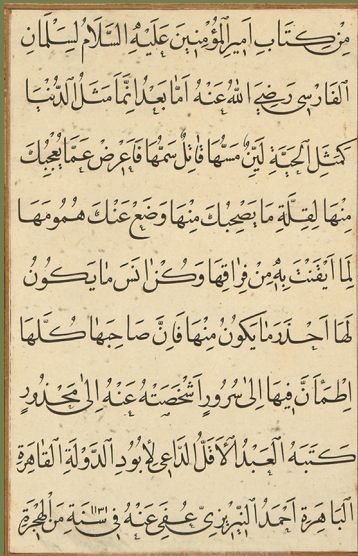 مِنْ كِتَابِ اَمِيرِ الْمُؤْمِنِينَ عَلَيْهِ السَّلَامُ لِسَلْمَانِ
الْفَارْسِى رَضِىَ اللهُ عَنْهُ اَمَّا بَعْدُ اِنَّمَا مَثَلُ الدُّنْيَا
كَمَثَلِ الْحَيَّةِ لَيِّنٌ مَسُّهَا قَاتِلٌ سَمُّهَا فَاَعْرِضْ عَمَّا يُعْجِبُكَ
مِنْهَا لِقِلَّةِ مَا يَصْحَبُكَ مِنْهَا وَضَعْ عَنْكَ هُمُومَهَا
لِمَا اَيْقَنْتَ بِهِ مِنْ فِرَاقِهَا وَكُنْ اٰنَسَ مٰا يَكُونُ
لَهَا اَحْذَرَ مٰا يَكُونُ مِنْهَا فَاِنَّ صَاحِبَهَا كُلَّمَا
اِطْمَاَنَّ فِيهَا اِلىٰ سُرُورٍ اَشْخَصَتْهُ عَنْهُ اِلىٰ مَحْذُورٍ
كَتَبَهُ الْعَبْدُ الْاَقَلُّ الدَّاعِى لِاُبُودِ الدَّوْلَةِ الْقَاهِرَةِ
الْبَاهِرَةِ اَحْمَدُ النَّيْرِيزِىّ عُفِىَ عَنْهُ فِى سَنَةِ ١١٣١ مِنَ الْهِجْرَةِ